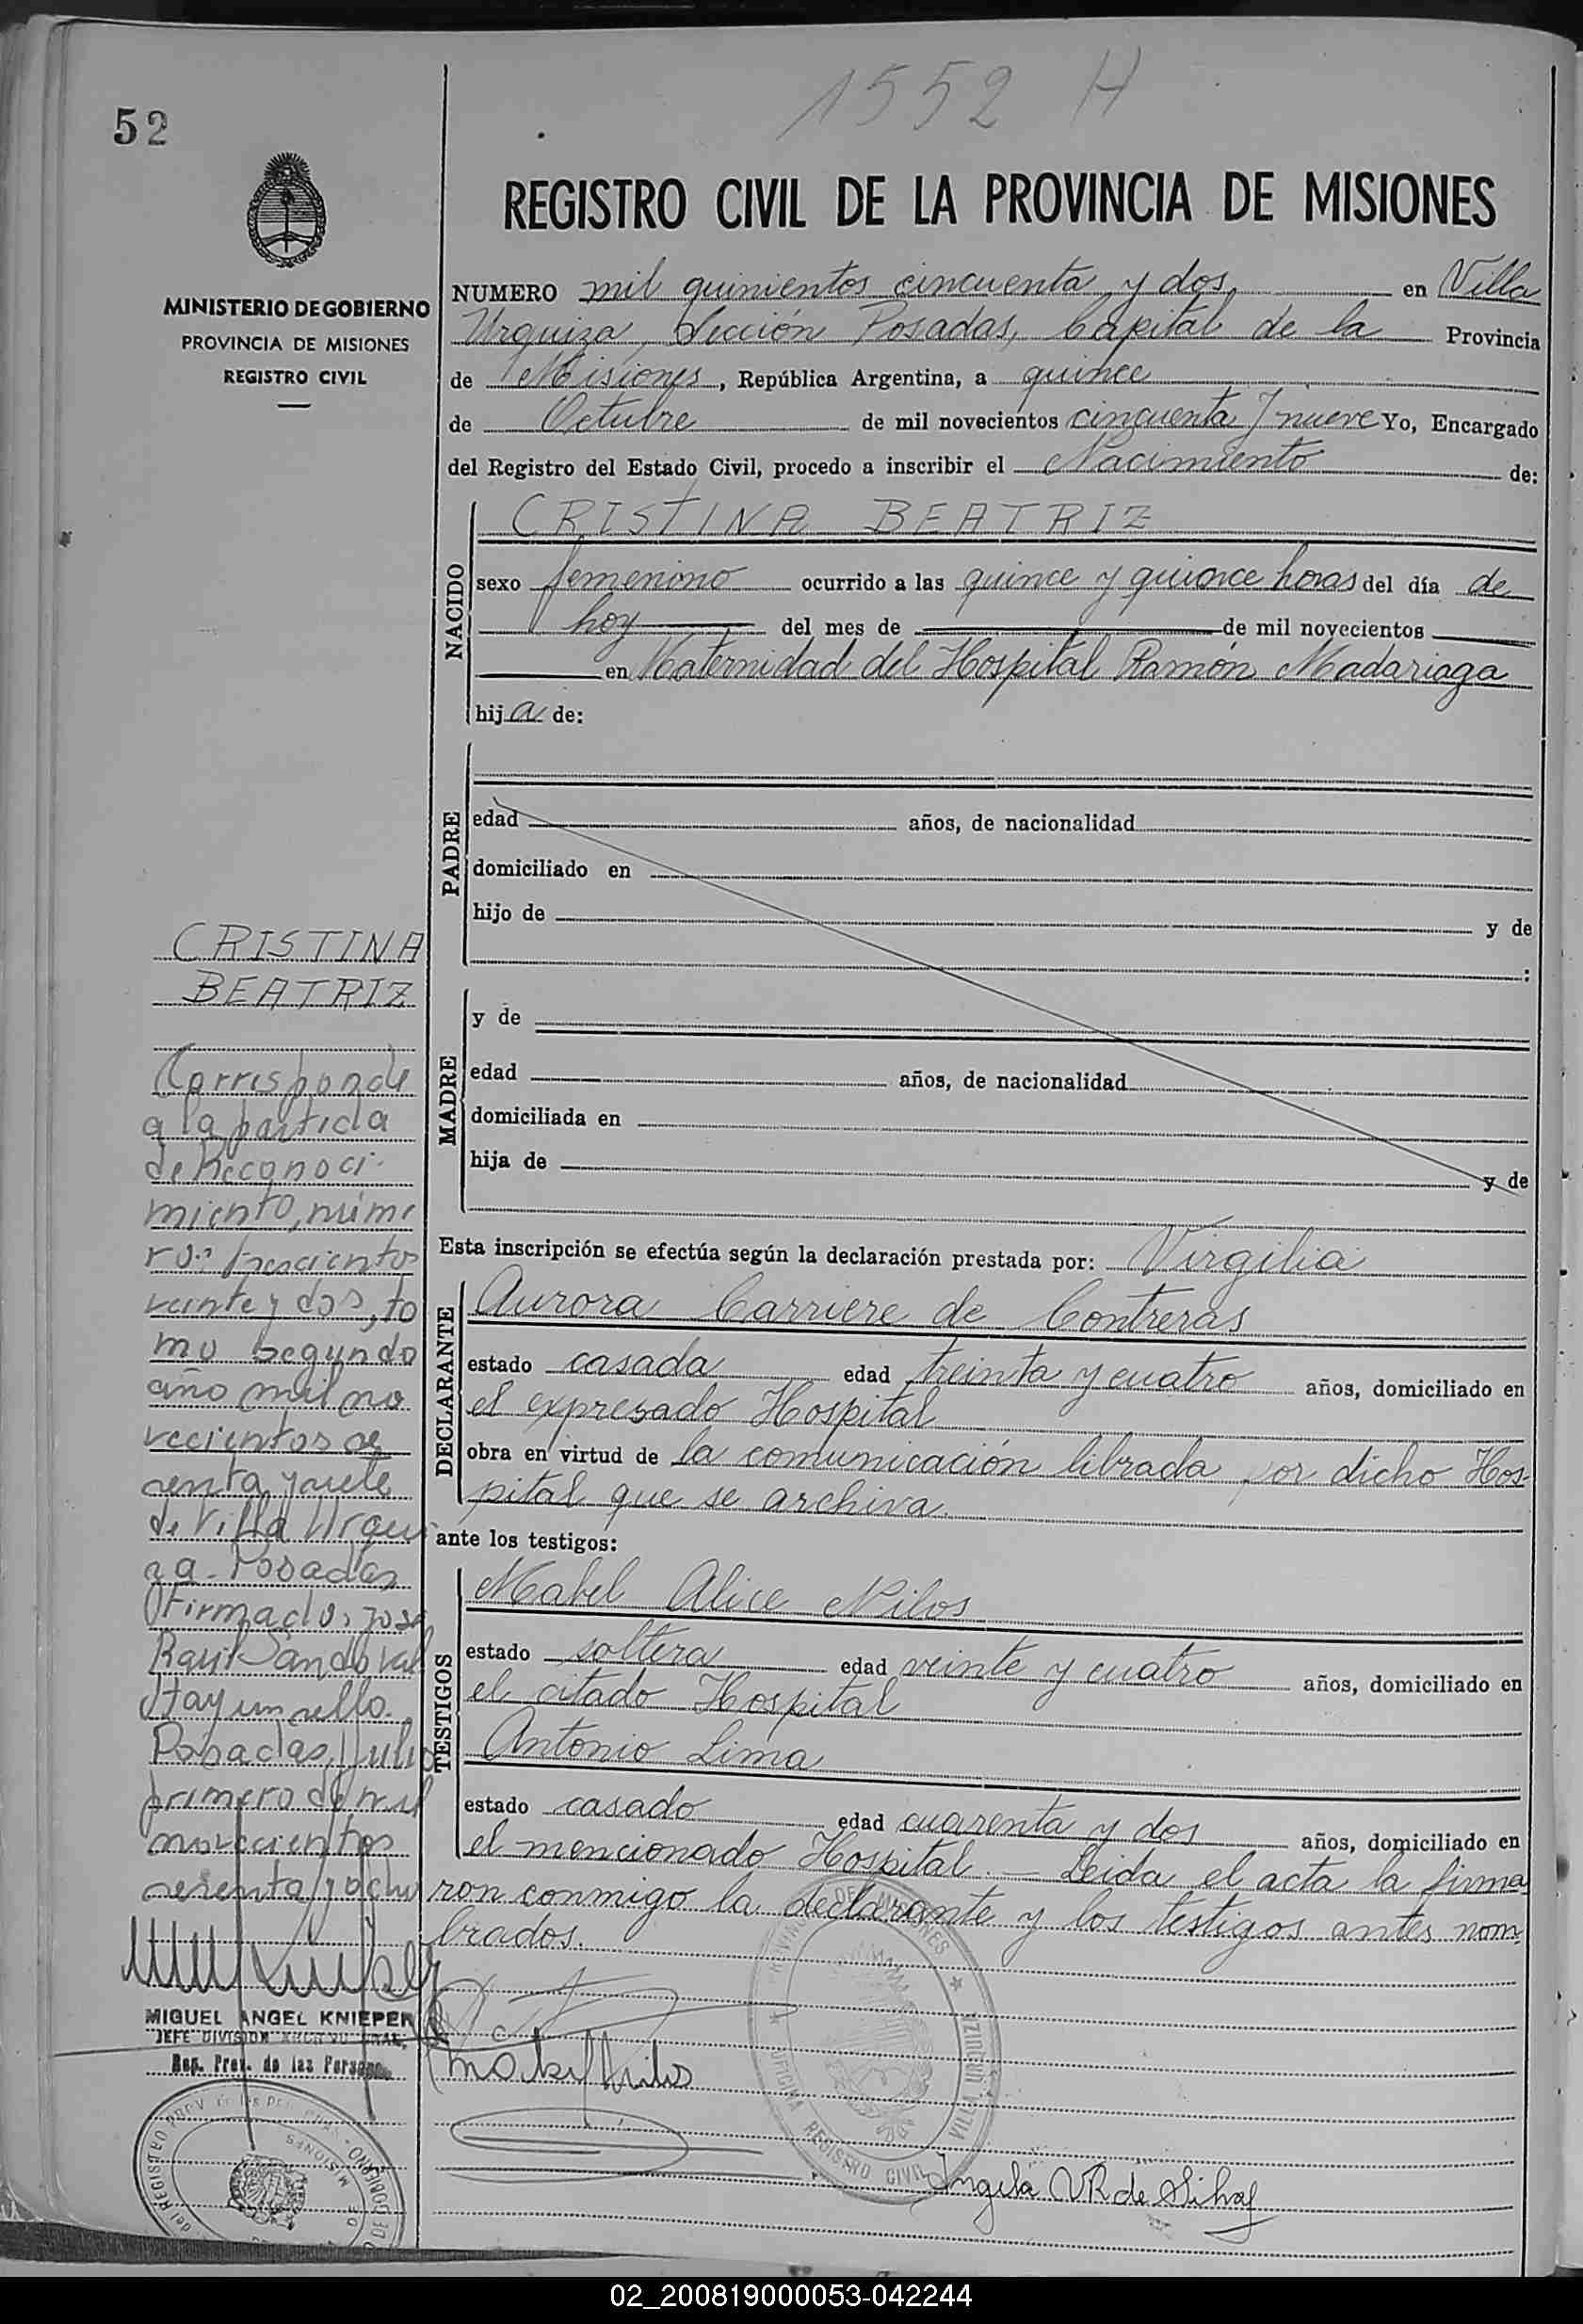 52
1552 H
REGISTRO CIVIL DE LA PROVINCIA DE MISIONES
MINISTERIO DE GOBIERNO
PROVINCIA DE MISIONES
REGISTRO CIVIL
NUMERO mil quinientos cincuenta y dos en Villa
Urquiza, Sección Posadas, Capital de la Provincia
de Misiones, República Argentina, a quince
de Octubre de mil novecientos cincuenta y nueve Yo, Encargado
del Registro del Estado Civil, procedo a inscribir el Nacimiento de:
NACIDO
CRISTINA BEATRIZ
sexo femenino ocurrido a las quince y quince horas del día de
hoy del mes de de mil novecientos
en Maternidad del Hospital Ramón Madariaga
hija de:
PADRE
edad años, de nacionalidad
domiciliado en
hijo de y de
:
MADRE
y de
edad años, de nacionalidad
domiciliada en
hija de y de
Esta inscripción se efectúa según la declaración prestada por: Virgilia
DECLARANTE
Aurora Carriere de Contreras
estado casada edad treinta y cuatro años, domiciliado en
el expresado Hospital
obra en virtud de la comunicación librada por dicho Hos-
pital que se archiva.
ante los testigos:
TESTIGOS
Mabel Alice Nilos
estado soltera edad veinte y cuatro años, domiciliado en
el citado Hospital
Antonio Lima
estado casado edad cuarenta y dos años, domiciliado en
el mencionado Hospital. — Leida el acta la firma
ron conmigo la declarante y los testigos antes nom-
brados.
CRISTINA
BEATRIZ
Corresponde
a la partida
de Reconoci-
miento, núme
ro: trescientos
veinte y dos, to
mo segundo
año mil no
vecientos se
senta y siete
de Villa Urqui
za - Posadas
Firmado, José
Raúl Sandoval
Hay un sello.
Posadas, Julio
primero de mil
novecientos
sesenta y ocho
MIGUEL ANGEL KNIEPER
JEFE DIVISION
Reg. Prov. de las Personas
PROVINCIA DE MISIONES
OFICINA REGISTRO CIVIL
VILLA URQUIZA
Angela VR de Silva
02_200819000053-042244